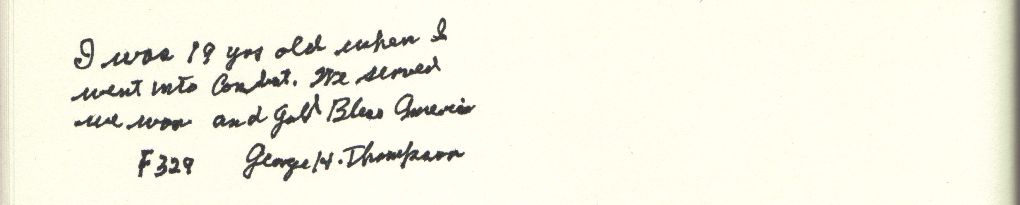 I was 19 yrs old when I
went into Combat. We served
we won and God Bless America
F329 George H. Thompson